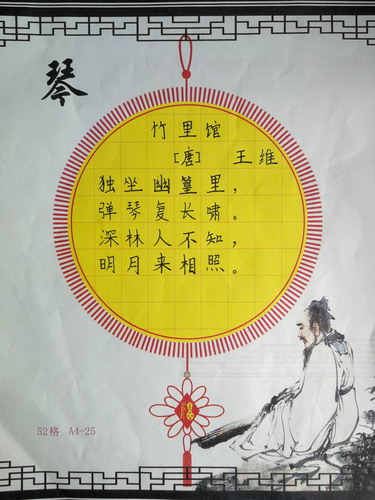 琴
竹里馆
[唐] 王维
独坐幽篁里，
弹琴复长啸。
深林人不知，
明月来相照。
52格 A4-25